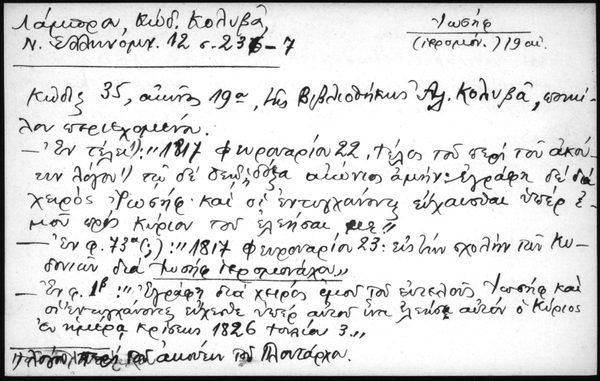 Λάμπρου, Κώδ. Κολυβᾶ
Ν. Ἑλληνομν. 12 σ. 236-7
Ἰωσήφ
(ἱερομόν.) 19 αἰ.
Κώδιξ 35, αἰῶνος 19ου, τῆς Βιβλιοθήκης Ἀλ. Κολυβᾶ, ποικί-
λου περιεχομένου.
— Ἐν τέλει: „1817 φευρουαρίου 22, τέλος τοῦ περὶ τοῦ ἀκού-
ειν λόγου! τῷ δὲ θεῷ δόξα αἰώνιος ἀμήν: Ἐγράφη δὲ διὰ
χειρὸς Ἰωσήφ· καὶ οἱ ἐντυγχάνοντες εὔχεσθαι ὑπὲρ ἐ-
μοῦ πρὸς Κύριον τοῦ ἐλεῆσαι με„
— Ἐν φ. 73α (;): „1817 φευρουαρίου 23: εἰς τὴν σχολὴν τῶν Κυ-
δωνιῶν διὰ Ἰωσὴφ ἱερομονάχου„
— Ἐν φ. 1β: „Ἐγράφη διὰ χειρὸς ἐμοῦ τοῦ εὐτελοῦς Ἰωσὴφ καὶ
οἱ ἐντυγχάνοντες εὔχεσθε ὑπὲρ αὐτοῦ ἵνα ἐλεήσῃ αὐτὸν ὁ Κύριος
ἐν ἡμέρᾳ κρίσεως 1826 Ἰουλίου 3„
τοῦ ἀκούειν τοῦ Πλουτάρχου.